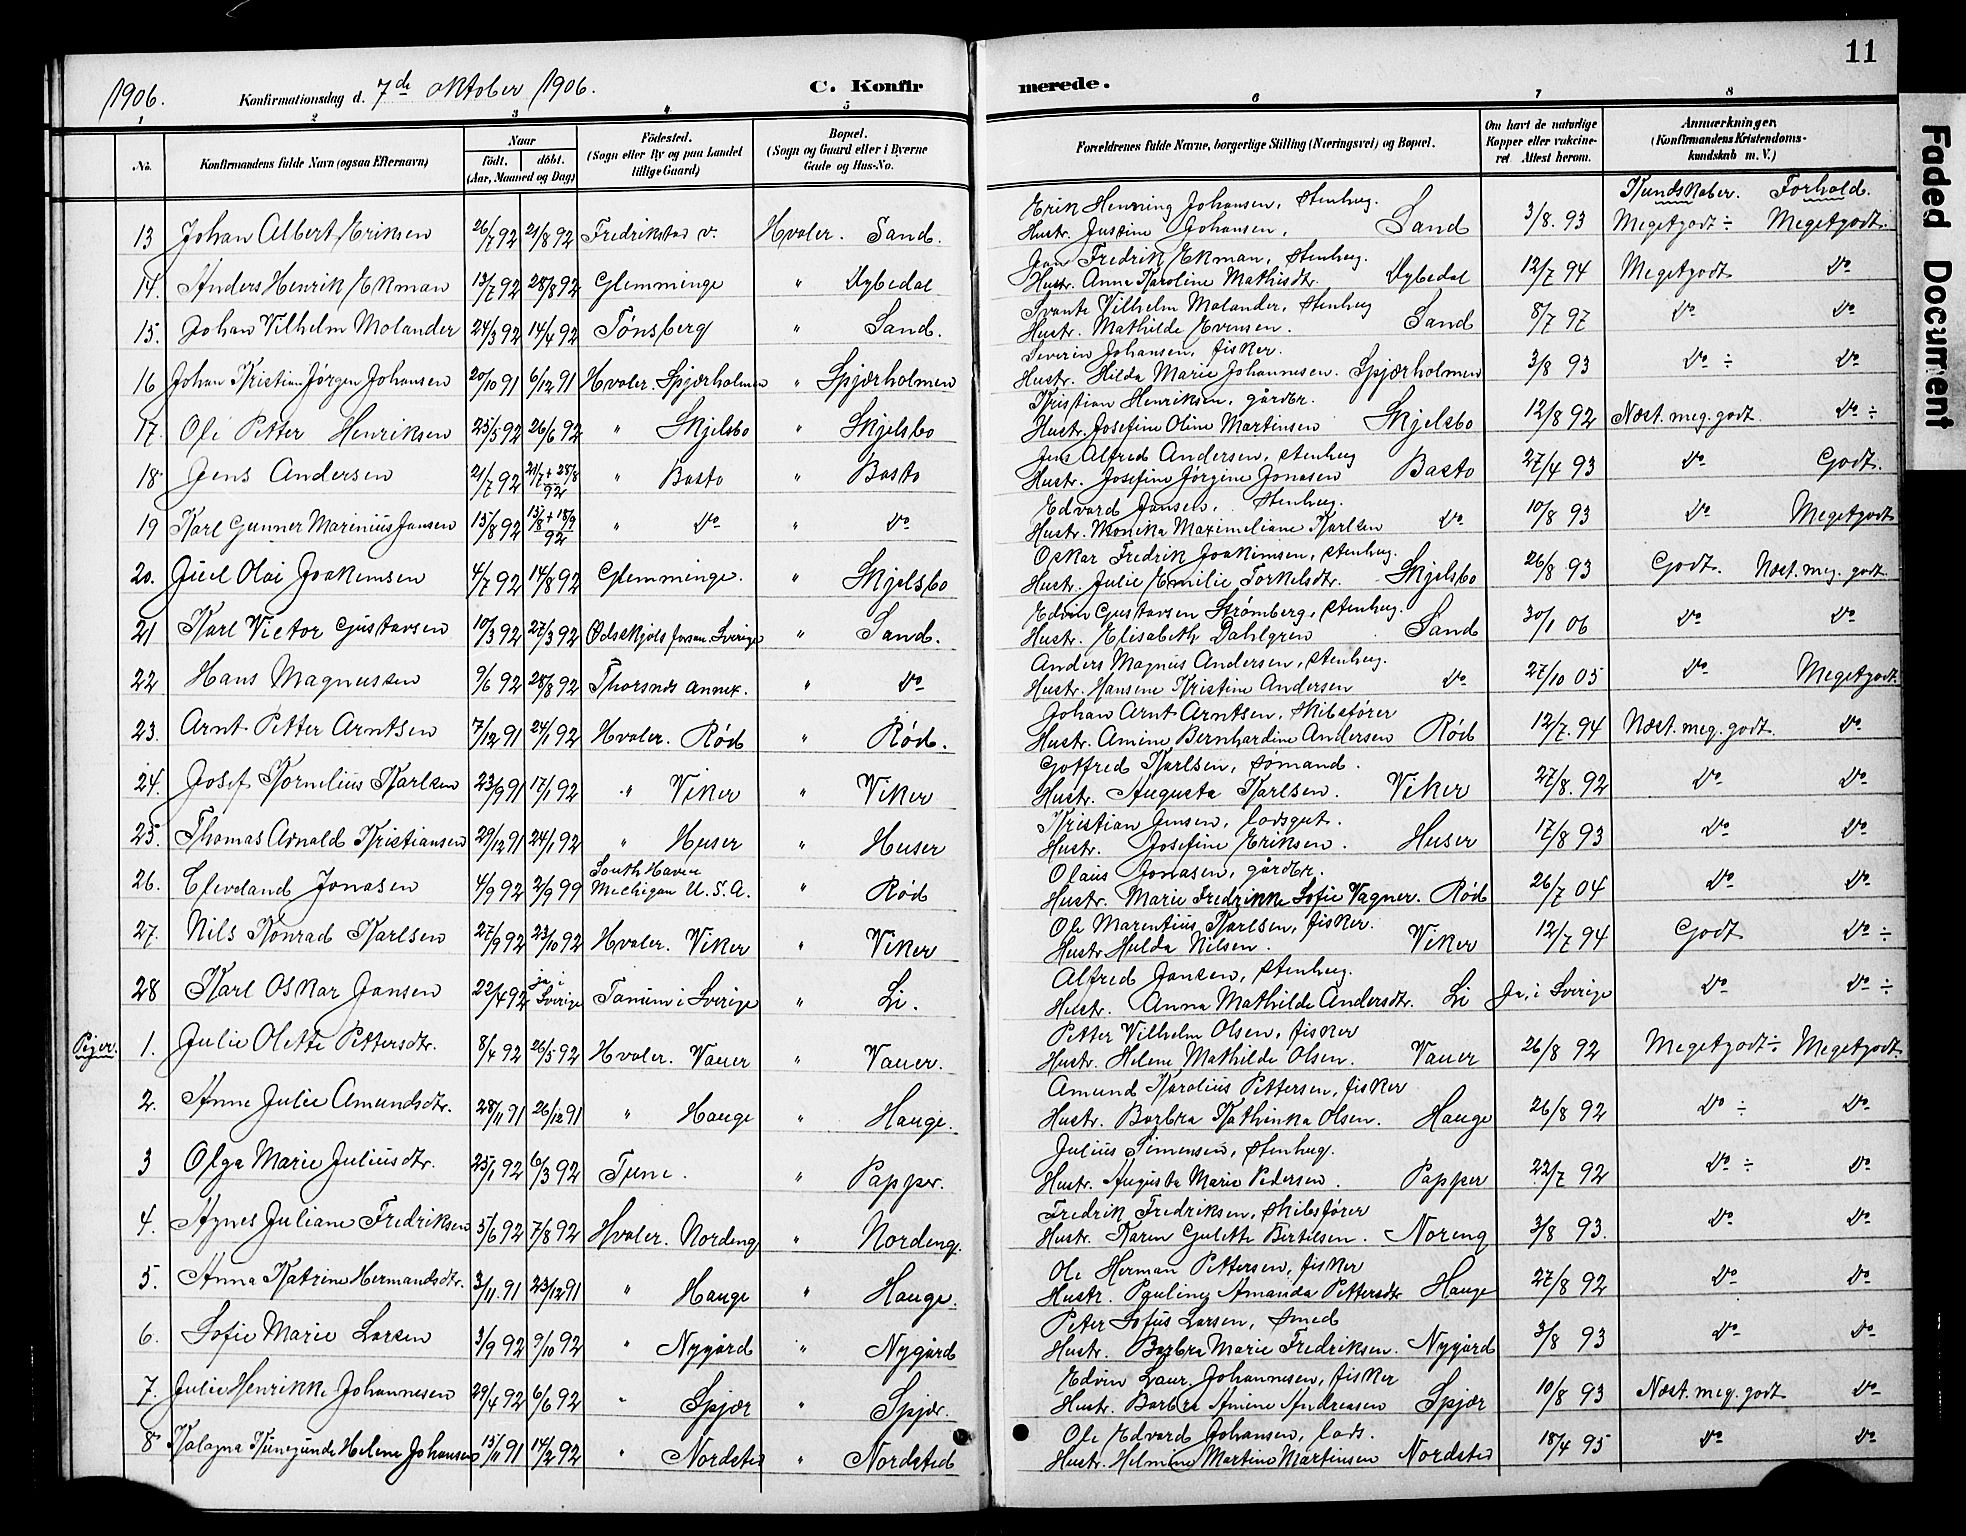 11
Faded Document
1906. Konfirmationsdag d. 7de oktober 1906. C. Konfirmerede.
1 2 3 4 5 6 7 8
No. Konfirmandens fulde Navn (ogsaa Efternavn) Naar født, døbt. (Aar, Maaned og Dag) Fødested. (Sogn eller By og paa Landet tillige Gaard) Bopæl. (Sogn og Gaard eller i Byerne Gade og Hus-No. Forældrenes fulde Navne, borgerlige Stilling (Næringsvei) og Bopæl. Om havt de naturlige Kopper eller vakcineret. Attest herom. Anmærkninger. (Konfirmandens Kristendomskundskab m. V.)
Kundskaber. Forhold.
Erik Henning Johansen, Stenhug.
13 Johan Albert Eriksen 26/7 92 21/8 92 Fredrikstad v. Hvaler. Sand. Hustr. Justine Johansen, Sand 3/8. 93 Megetgodt ÷ Megetgodt.
Jan Fredrik Ekman, Stenhug.
14. Anders Henrik Ekman 13/7 92 28/8 92 Glemminge " Dybedal Hustr. Anna Karoline Mathisdtr. Dybedal 12/7 94 Megetgodt do
Svante Vilhelm Molander, Stenhug
15. Johan Vilhelm Molander 24/3 92 14/4 92 Tønsberg " Sand. Hustr. Mathilde Evensen. Sand 8/7 97 do do
Severin Johansen, fisker.
16 Johan Kristian Jørgen Johansen 20/10 91 6/12 91 Hvaler. Spjærholmen " Spjærholmen Hustr. Hilda Marie Johannesen. Spjærholmen 3/8 93 do ÷ do
Kristian Henriksen, gårdbr.
17. Ole Petter Henriksen 25/5 92 26/6 92 " Skjelsbo " Skjelsbo Hustr. Josefine Oline Martinsen Skjelsbo 12/8 92 Næst. meg. godt do ÷
Jens Alfred Andersen, Stenhug
18. Jens Andersen 21/7 92 21/7 + 28/8 92 " Basto " Basto Hustr. Josefine Jørgine Jonasen Basto 27/4 93 do Godt.
Edvard Jansen, Stenhug.
19 Karl Gunner Marinius Jansen 15/8 92 15/8 + 18/9 92 " do " do Hustr. Monika Maximeliane Karlsen do 10/8 93 do Megetgodt
Oskar Fredrik Joakimsen, Stenhug.
20. Juel Olai Joakimsen 4/7 92 14/8 92 Glemminge. " Skjelsbo Hustr. Julie Emilie Torkelsdtr. Skjelsbo 26/8 93 Godt. Næst. meg. godt
Edvin Gustavsen Strømberg, Stenhug.
21 Karl Victor Gustavsen 10/3 92 27/3 92 Sverige " Sand. Hustr. Elisabeth Dahlgren Sand 30/1 06 do do
Anders Magnus Andersen, Stenhug.
22 Hans Magnussen 9/6 92 28/8 92 Thorsnes annex. " do Hustr. Hansine Kristine Andersen do 27/10 05 do Megetgodt.
Johan Arnt Arntsen, Skibsfører
23. Arnt Petter Arntsen 7/12 91 24/1 92 Hvaler. Rød " Rød. Hustr. Amine Bernhardine Andersen Rød 12/7. 94 Næst. meg. godt do
Gotfred Karlsen, sømand.
24. Josef Kornelius Karlsen 23/9 91 17/1 92 " Viker " Viker Hustr. Augusta Karlsen. Viker 27/8. 92 do do
Kristian Jensen, lodsgut.
25. Thomas Arnold Kristiansen 29/12 91 24/1 92 " Huser " Huser Hustr. Josefine Eriksen. Huser 17/8 93 do do
Olaus Jonasen, gårdbr.
26. Cleveland Jonasen 4/9 92 2/9 99 South Haven Michigan U. S. A. " Rød Hustr. Marie Fredrikke Sofie Vagner. Rød 26/7 04 do do
Ole Marentius Karlsen, fisker.
27. Nils Konrad Karlsen 27/9 92 23/10 92 Hvaler. Viker " Viker Hustr. Hulda Nilsen. Viker 12/7 94 Godt do ÷
Alfred Jansen, Stenhug.
28 Karl Oskar Jansen 22/4 92 ja i Sverige Tanum i Sverige " Li. Hustr. Anna Mathilde Andersdtr. Li Ja, i Sverige do do ÷
Petter Vilhelm Olsen, fisker
Piger. 1. Julie Olette Pettersdtr. 8/4 92 26/5 92 Hvaler. Vauer " Vauer. Hustr. Helene Mathilde Olsen. Vauer 26/8 92 Megetgodt ÷ Megetgodt
Amund Karolius Pettersen, fisker
2. Anne Julie Amundsdtr. 28/11 91 26/12 91 " Hauge " Hauge. Hustr. Barbra Kathinka Olsen. Hauge 26/8 92 do ÷ do
Julius Simensen, Stenhug.
3 Olga Marie Juliusdtr. 25/1 92 6/3 92 Tune. " Papper. Hustr. Augusta Marie Pedersen. Papper 22/7 92 do ÷ do
Fredrik Fredriksen, Skibsfører
4. Agnes Juliane Fredriksen 5/6 92 7/8 92 Hvaler. Nordeng " Nordeng. Hustr. Karen Gulette Bertilsen. Noreng 3/8 93. do do
Ole Herman Pettersen, fisker
5. Anna Katrine Hermandsdtr. 3/11. 91 23/12 91 " Hauge " Hauge. Hustr. Pauline Amanda Pettersdtr Hauge 27/8 92 do do
Peter Sofus Larsen, Smed
6. Sofie Marie Larsen 3/9 92 9/10 92 " Nygård " Nygård Hustr. Barbra Marie Fredriksen. Nygård 3/8 93 do do
Edvin Laur. Johannesen, fisker
7. Julie Henrikke Johannesen 29/4 92 6/6 92 " Spjær " Spjær. Hustr. Barbra Amine Andreasen Spjær 10/8 93 Næst. meg. godt do
Ole Edvard Johansen, lods.
8 Kalagna Kunegunde Helene Johansen 15/11 91 14/2 92 " Nordsted " Nordsted Hustr. Helmine Martine Martinsen Nordsted 18/4 95 do do